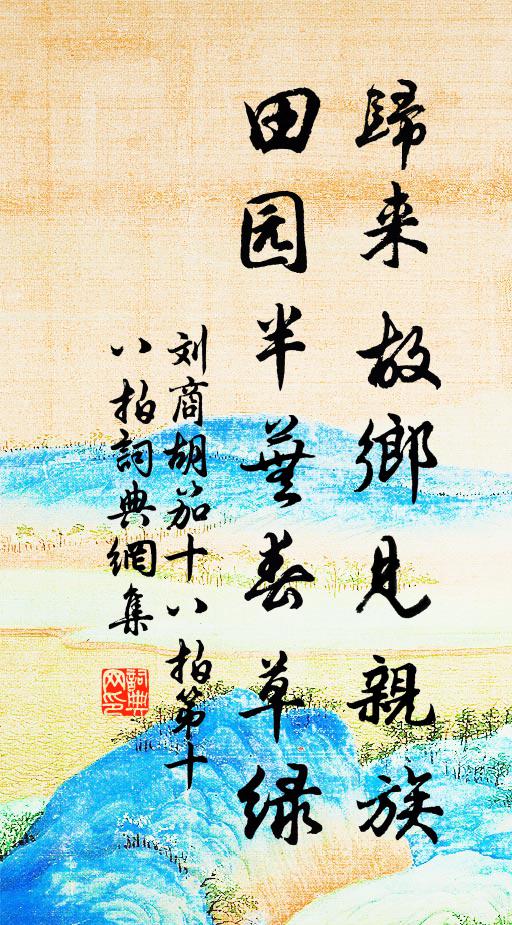 歸来故鄉見親族
田园半蕪春草緑
刘商胡笳十八拍第十
八拍詞典網集
詞典网印